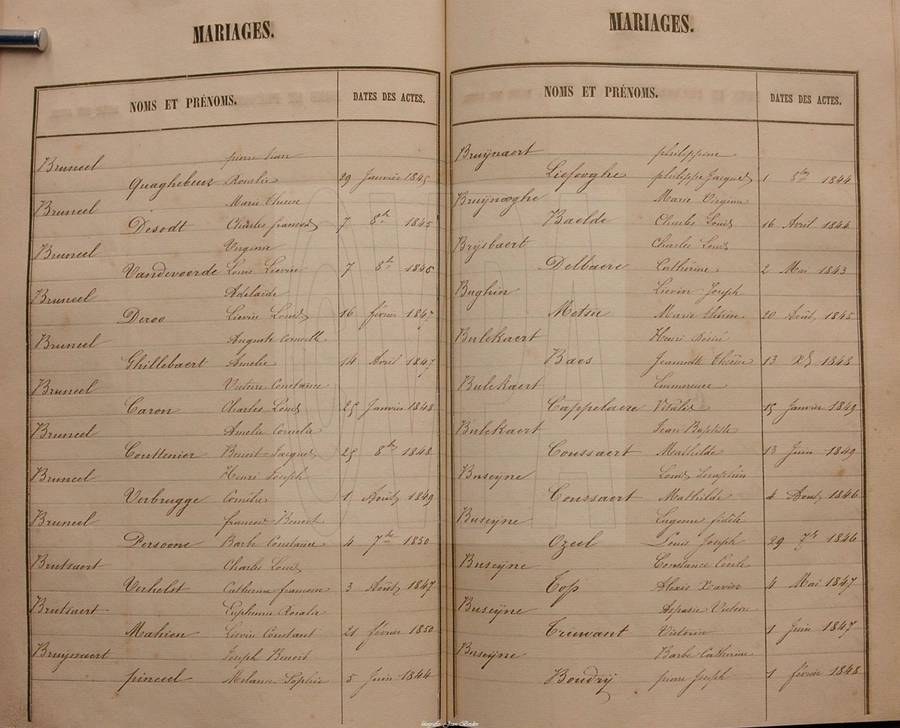 MARIAGES.
NOMS ET PRÉNOMS. DATES DES ACTES.
Bruneel pierre Jean
Quaghebeur Rosalie 29 Janvier 1845
Bruneel Marie
Desodt Charles francois 7 8bre 1845
Bruneel Virginie
Vandevoorde Louis Lievin 7 8bre 1846
Bruneel Adelaide
Deroo Lievin Louis 16 février 1847
Bruneel Auguste Corneille
Ghillebaert Amelie 14 Avril 1847
Bruneel Victoire Constance
Caron Charles Louis 25 Janvier 1848
Bruneel Amelie Cornelie
Couttenier Benoit Jacques 25 8bre 1848
Bruneel Henri Joseph
Verbrugge Cornelie 1 Août 1849
Bruneel francois Benoit
Persoone Barbe Constance 4 7bre 1850
Brutsaert Charles Louis
Verhelst Catherine francoise 3 Août 1847
Brutsaert Euphemie Rosalie
Mahieu Lievin Constant 21 février 1850
Bruynaert Joseph Benoit
pinceel Melanie Sophie 5 Juin 1844
MARIAGES.
NOMS ET PRÉNOMS. DATES DES ACTES.
Bruynaert philippine
Liefooghe philippe Jacques 1 8bre 1844
Bruynooghe Marie Virginie
Baelde Charles Louis 16 Avril 1844
Brysbaert Charles Louis
Delbaere Catherine 2 Mai 1843
Bughin Lievin Joseph
Metsu Marie 20 Août 1845
Bulckaert Henri Désiré
Baes Jeannette Thérèse 13
Bulckaert Emmerence
Cappelaere Vitalis 15 Janvier 1849
Bulckaert Jean Baptiste
Coussaert Mathilde 13 Juin 1849
Buseyne Louis Seraphin
Coussaert Mathilde 4 Août 1846
Buseyne Eugenie fidèle
Ozeel Louis Joseph 29 7bre 1846
Buseyne Constance Cecile
Top Alexis Xavier 4 Mai 1847
Buseyne
Teuwant Victorin 1 Juin 1847
Buseyne Barbe Catherine
Boudry pierre Joseph 1 février 1848